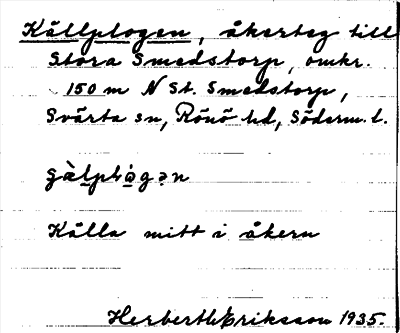 Källplogen, åkerteg till
Stora Smedstorp, omkr.
150 m N St. Smedstorp,
Svärta sn, Rönö hd, Söderm. l.
Källa mitt i åkern
Herbert Eriksson 1935.